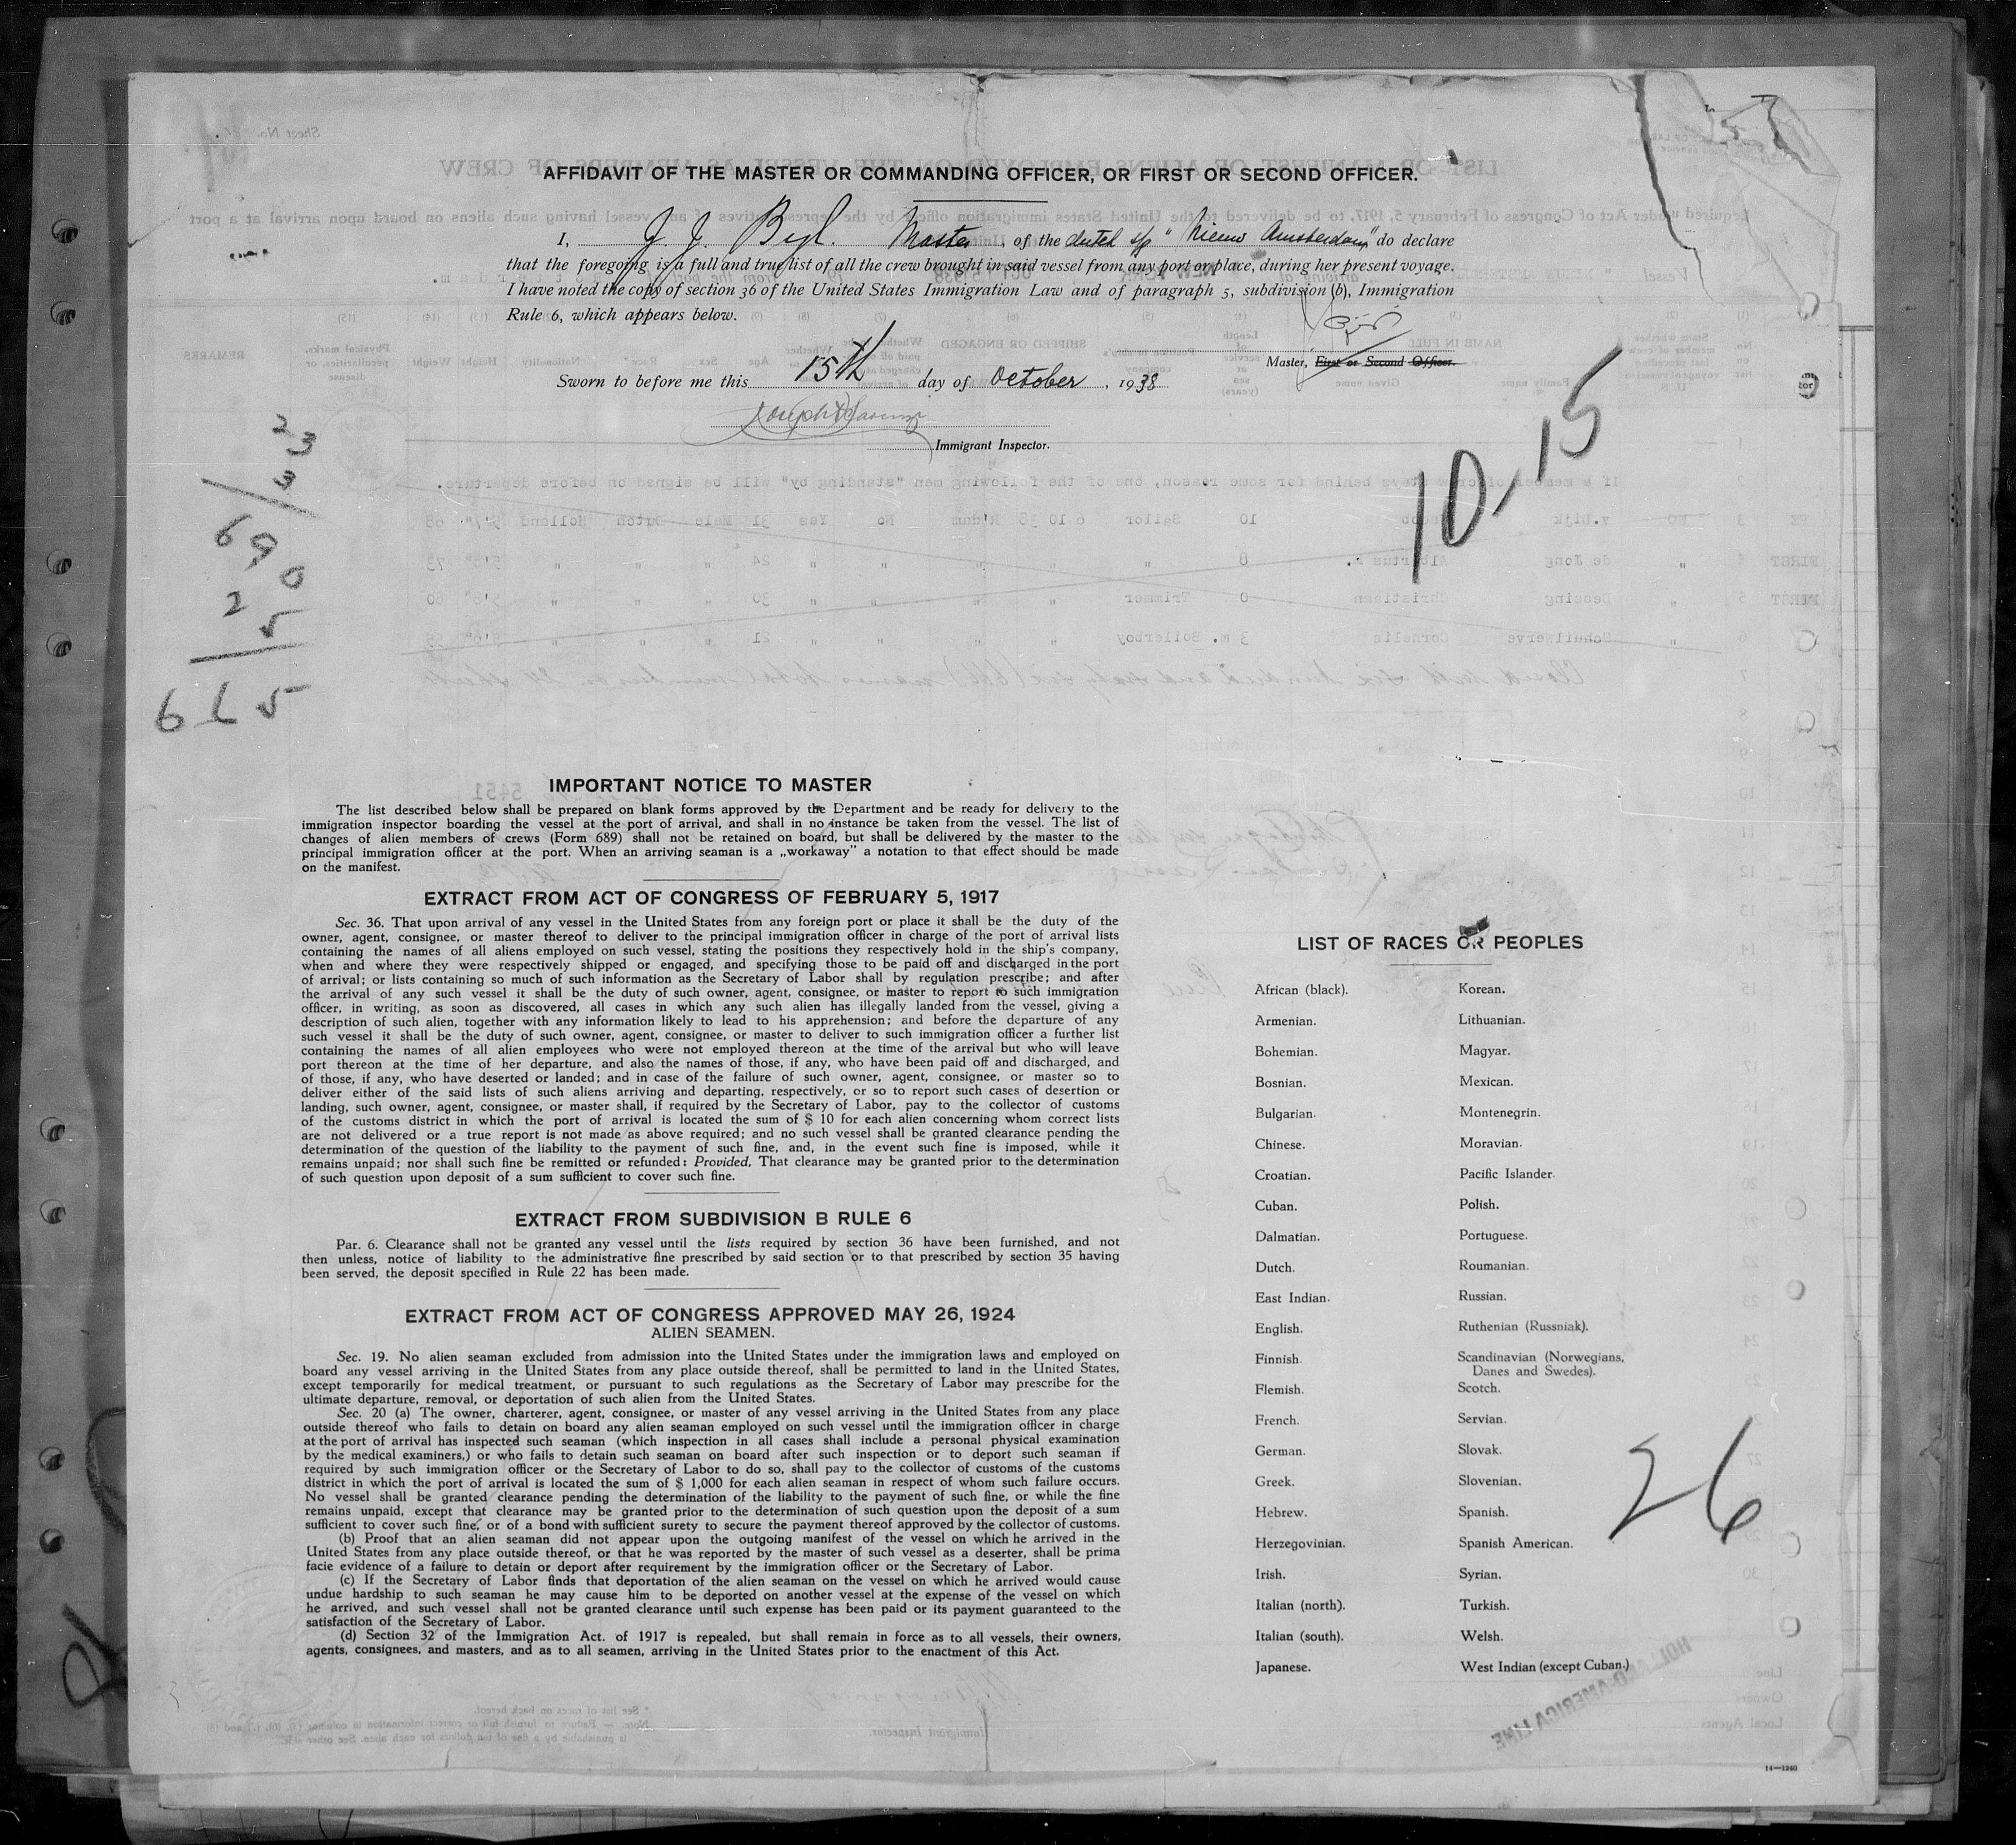 AFFIDAVIT OF THE MASTER OR COMMANDING OFFICER, OR FIRST OR SECOND OFFICER.
I, J. J. Bijl. Master, of the dutch s/s "Nieuw Amsterdam" do declare
that the foregoing is a full and true list of all the crew brought in said vessel from any port or place, during her present voyage.
I have noted the copy of section 36 of the United States Immigration Law and of paragraph 5, subdivision (b), Immigration
Rule 6, which appears below.
Master, First or Second Officer.
Sworn to before me this 15th day of October, 1938
Immigrant Inspector.
10-15
23
3
690
25
665
IMPORTANT NOTICE TO MASTER
The list described below shall be prepared on blank forms approved by the Department and be ready for delivery to the
immigration inspector boarding the vessel at the port of arrival, and shall in no instance be taken from the vessel. The list of
changes of alien members of crews (Form 689) shall not be retained on board, but shall be delivered by the master to the
principal immigration officer at the port. When an arriving seaman is a „workaway” a notation to that effect should be made
on the manifest.
EXTRACT FROM ACT OF CONGRESS OF FEBRUARY 5, 1917
Sec. 36. That upon arrival of any vessel in the United States from any foreign port or place it shall be the duty of the
owner, agent, consignee, or master thereof to deliver to the principal immigration officer in charge of the port of arrival lists
containing the names of all aliens employed on such vessel, stating the positions they respectively hold in the ship's company,
when and where they were respectively shipped or engaged, and specifying those to be paid off and discharged in the port
of arrival; or lists containing so much of such information as the Secretary of Labor shall by regulation prescribe; and after
the arrival of any such vessel it shall be the duty of such owner, agent, consignee, or master to report to such immigration
officer, in writing, as soon as discovered, all cases in which any such alien has illegally landed from the vessel, giving a
description of such alien, together with any information likely to lead to his apprehension; and before the departure of any
such vessel it shall be the duty of such owner, agent, consignee, or master to deliver to such immigration officer a further list
containing the names of all alien employees who were not employed thereon at the time of the arrival but who will leave
port thereon at the time of her departure, and also the names of those, if any, who have been paid off and discharged, and
of those, if any, who have deserted or landed; and in case of the failure of such owner, agent, consignee, or master so to
deliver either of the said lists of such aliens arriving and departing, respectively, or so to report such cases of desertion or
landing, such owner, agent, consignee, or master shall, if required by the Secretary of Labor, pay to the collector of customs
of the customs district in which the port of arrival is located the sum of $ 10 for each alien concerning whom correct lists
are not delivered or a true report is not made as above required; and no such vessel shall be granted clearance pending the
determination of the question of the liability to the payment of such fine, and, in the event such fine is imposed, while it
remains unpaid; nor shall such fine be remitted or refunded: Provided, That clearance may be granted prior to the determination
of such question upon deposit of a sum sufficient to cover such fine.
EXTRACT FROM SUBDIVISION B RULE 6
Par. 6. Clearance shall not be granted any vessel until the lists required by section 36 have been furnished, and not
then unless, notice of liability to the administrative fine prescribed by said section or to that prescribed by section 35 having
been served, the deposit specified in Rule 22 has been made.
EXTRACT FROM ACT OF CONGRESS APPROVED MAY 26, 1924
ALIEN SEAMEN.
Sec. 19. No alien seaman excluded from admission into the United States under the immigration laws and employed on
board any vessel arriving in the United States from any place outside thereof, shall be permitted to land in the United States,
except temporarily for medical treatment, or pursuant to such regulations as the Secretary of Labor may prescribe for the
ultimate departure, removal, or deportation of such alien from the United States.
Sec. 20 (a) The owner, charterer, agent, consignee, or master of any vessel arriving in the United States from any place
outside thereof who fails to detain on board any alien seaman employed on such vessel until the immigration officer in charge
at the port of arrival has inspected such seaman (which inspection in all cases shall include a personal physical examination
by the medical examiners,) or who fails to detain such seaman on board after such inspection or to deport such seaman if
required by such immigration officer or the Secretary of Labor to do so, shall pay to the collector of customs of the customs
district in which the port of arrival is located the sum of $ 1,000 for each alien seaman in respect of whom such failure occurs.
No vessel shall be granted clearance pending the determination of the liability to the payment of such fine, or while the fine
remains unpaid, except that clearance may be granted prior to the determination of such question upon the deposit of a sum
sufficient to cover such fine, or of a bond with sufficient surety to secure the payment thereof approved by the collector of customs.
(b) Proof that an alien seaman did not appear upon the outgoing manifest of the vessel on which he arrived in the
United States from any place outside thereof, or that he was reported by the master of such vessel as a deserter, shall be prima
facie evidence of a failure to detain or deport after requirement by the immigration officer or the Secretary of Labor.
(c) If the Secretary of Labor finds that deportation of the alien seaman on the vessel on which he arrived would cause
undue hardship to such seaman he may cause him to be deported on another vessel at the expense of the vessel on which
he arrived, and such vessel shall not be granted clearance until such expense has been paid or its payment guaranteed to the
satisfaction of the Secretary of Labor.
(d) Section 32 of the Immigration Act. of 1917 is repealed, but shall remain in force as to all vessels, their owners,
agents, consignees, and masters, and as to all seamen, arriving in the United States prior to the enactment of this Act.
LIST OF RACES OR PEOPLES
African (black).
Armenian.
Bohemian.
Bosnian.
Bulgarian.
Chinese.
Croatian.
Cuban.
Dalmatian.
Dutch.
East Indian.
English.
Finnish.
Flemish.
French.
German.
Greek.
Hebrew.
Herzegovinian.
Irish.
Italian (north).
Italian (south).
Japanese.
Korean.
Lithuanian.
Magyar.
Mexican.
Montenegrin.
Moravian.
Pacific Islander.
Polish.
Portuguese.
Roumanian.
Russian.
Ruthenian (Russniak).
Scandinavian (Norwegians,
Danes and Swedes).
Scotch.
Servian.
Slovak.
Slovenian.
Spanish.
Spanish American.
Syrian.
Turkish.
Welsh.
West Indian (except Cuban.)
26
HOLLAND-AMERICA LINE
14—1240